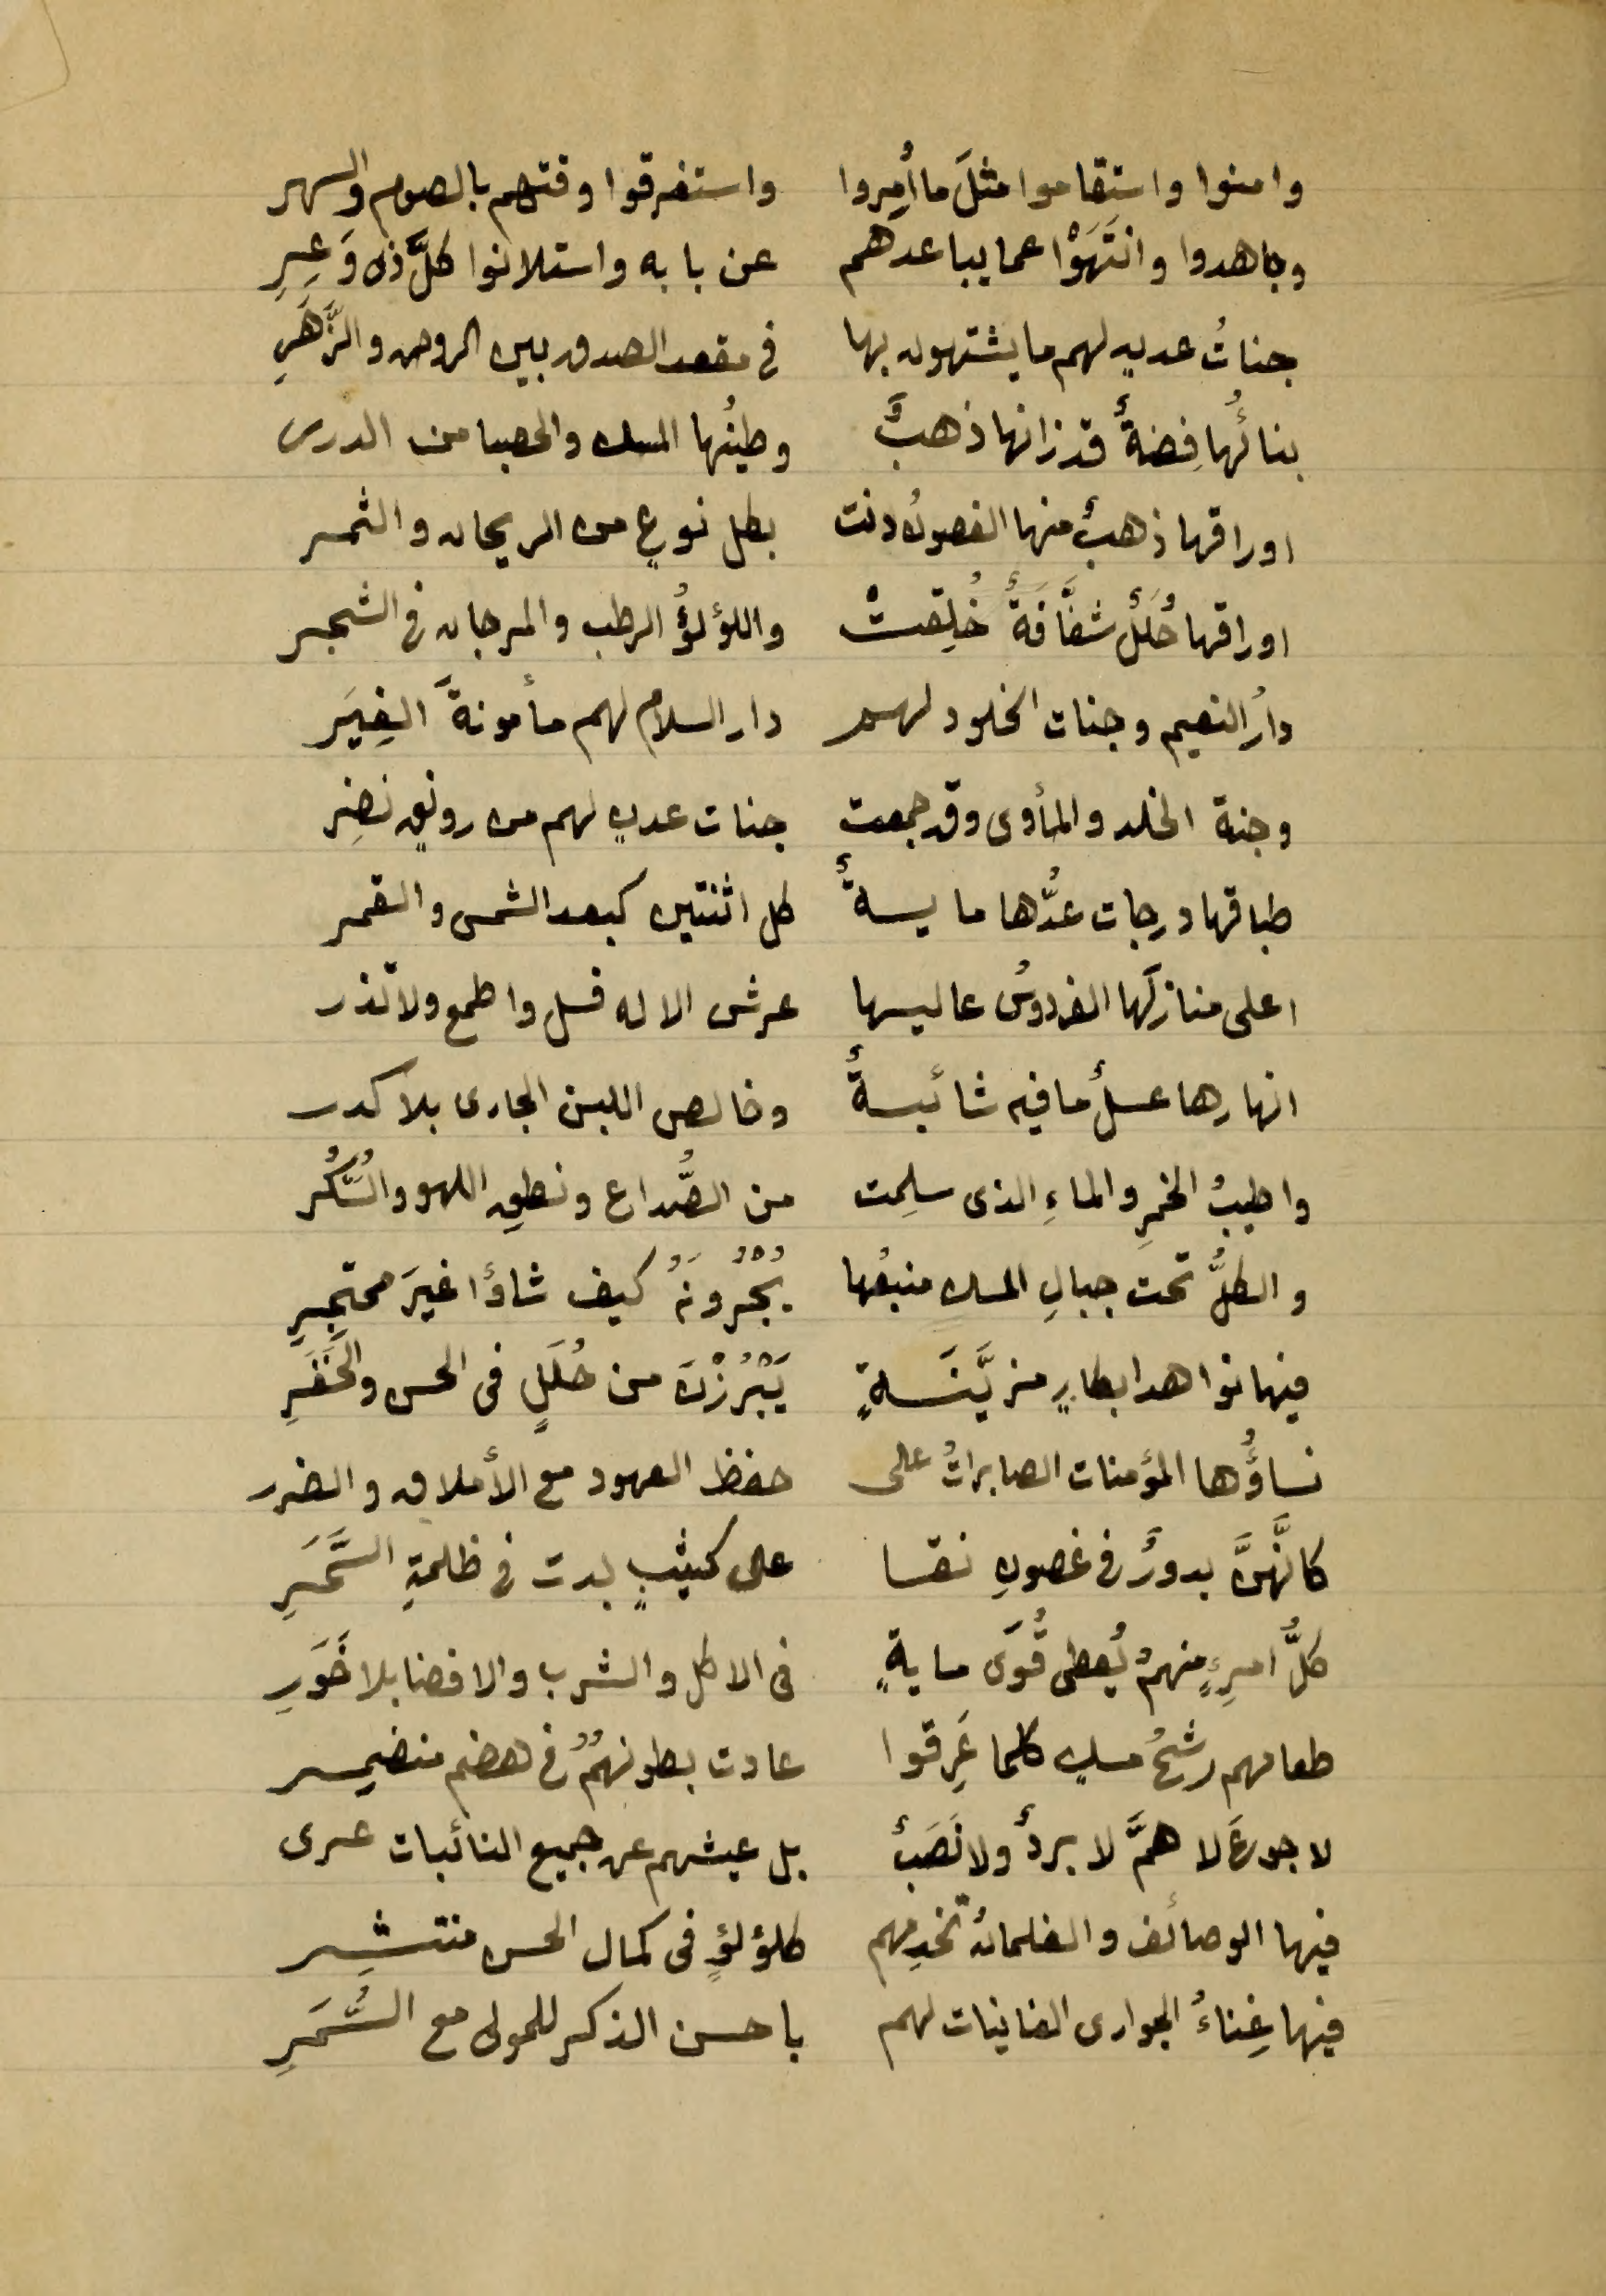 وامنوا واستقاموا مثلَ ما أُمِروا واستغرقوا وقتهم بالصوم والسهر
وجاهدوا وانتَهَوْا عما يباعدهم عن بابه واستلانوا كلَّ ذى وَعِرِ
جناتُ عدنٍ لهم ما يشتهون بها في مقعد الصدق بين الروض والزَّهَرِ
بنائُها فِضةٌ قد زانها ذهبٌ وطينُها المسك والحصبا من الدرر
اوراقها ذهبٌ منها الغصونُ دنت بكل نوعٍ من الريحان والثمر
اوراقها حُلَلٌ شفَّافَةٌ خُلِقتْ واللؤلؤُ الرطب والمرجان في الشجر
دارُ النعيم وجنات الخلود لهم دار السلام لهم مأمونةَ الغِيَر
وجنة الخلد والمأوى وقد جمعت جنات عدنٍ لهم من رونقٍ نضِر
طباقها درجات عدُّها مايـةٌ كل اثنتين كبعد الشمس والقمر
اعلى منازلَها الفردوسُ عاليها عرش الاله فسل واطمع ولا تذر
انهارها عسلٌ ما فيه شائبـةٌ وخالص اللبن الجارى بلا كدر
واطيبُ الخمرِ والماءِ الذى سلِمت من الصُّداع ونطقِ اللهو والسُّكُر
والكلُّ تحت جبالِ المسك منبعُها يُجْرُونَهُ كيف شاؤا غيرَ محتجِرِ
فيها نواهد ابكارٍ مزيَّنَـةٍ يَبْرُزْنَ من حُلَلٍ فى الحسن والخَفَرِ
نساؤُها المؤمنات الصابراتُ على حفظ العهود مع الأملاق والضرر
كانَّهنَّ بدورٌ في غصونِ نقـا على كثيبٍ بدت في ظلمةِ السَّحَرِ
كلُّ امرِءٍ منهمُ يُعطى قُوَى مايةٍ فى الاكل والشرب والافضا بلا خَوَرِ
طعامهم رشحُ مسكٍ كلما عَرِقوا عادت بطونهُمُ في هضم منضمـر
لا جوعَ لا همَّ لا بردٌ ولا نَصَبٌ بل عيشهم عن جميع النائبات عرى
فيها الوصائف والغلمانُ تخدِمهم كلؤلؤٍ فى كمال الحسن منتثـر
فيها غِناءُ الجوارى الغانيات لهم باحسن الذكر للمولى مع السَّمَرِ